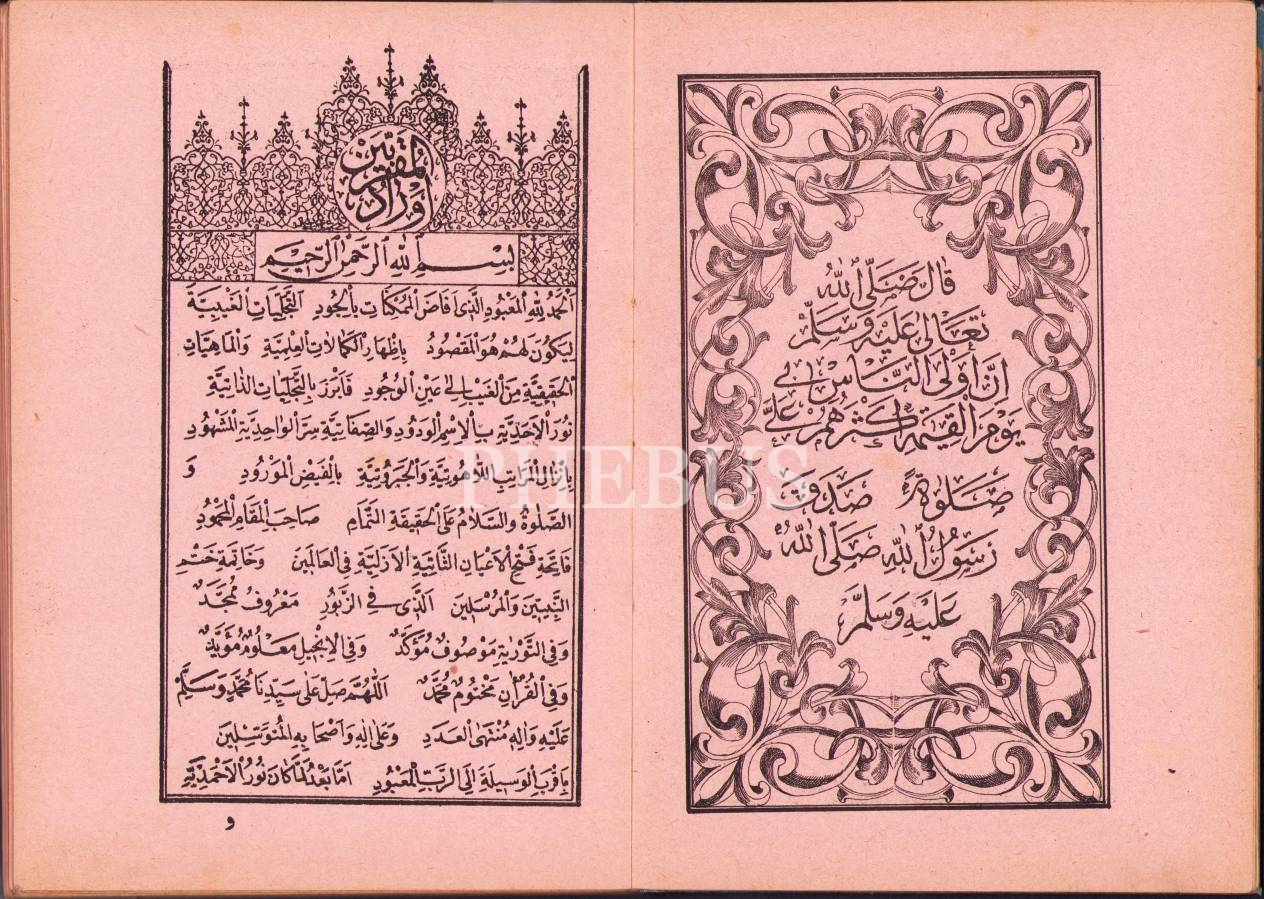 قال صلى الله
تعالى عليه وسلم
ان اولى الناس بى
يوم القيمة اكثرهم على
صلوة صدق
رسول الله صلى الله
عليه وسلم
اوراد المقربين
بسم الله الرحمن الرحيم
الحمد لله المعبود الذى افاض الممكنات بالجود التجليات الغيبية
ليكون لهم هو المقصود باظهار الكمالات العلمية والماهيات
الحقيقية من الغيب الى عين الوجود فابرز بالتجليات الذاتية
نور الاحدية بالاسم الودود والصفاتية سر الواحدية المشهود
بانزال المراتب اللاهوتية والجبروتية بالفيض المورود و
الصلوة والسلام على الحقيقة التمام صاحب المقام المحمود
فاتحة فتح الاعيان الثابتة الازلية فى العالمين وخاتمة ختم
النبيين والمرسلين الذى فى الزبور معروف ممجد
وفى التورية موصوف مؤكد وفى الانجيل معلوم مؤيد
وفى القرآن مختوم محمد اللهم صل على سيدنا محمد وسلم
عليه واله منتهى العدد وعلى اله واصحابه المتوسلين
باقرب الوسيلة الى الرب المعبود اما بعد لما كان نور الاحمدية
و
PHEBUS